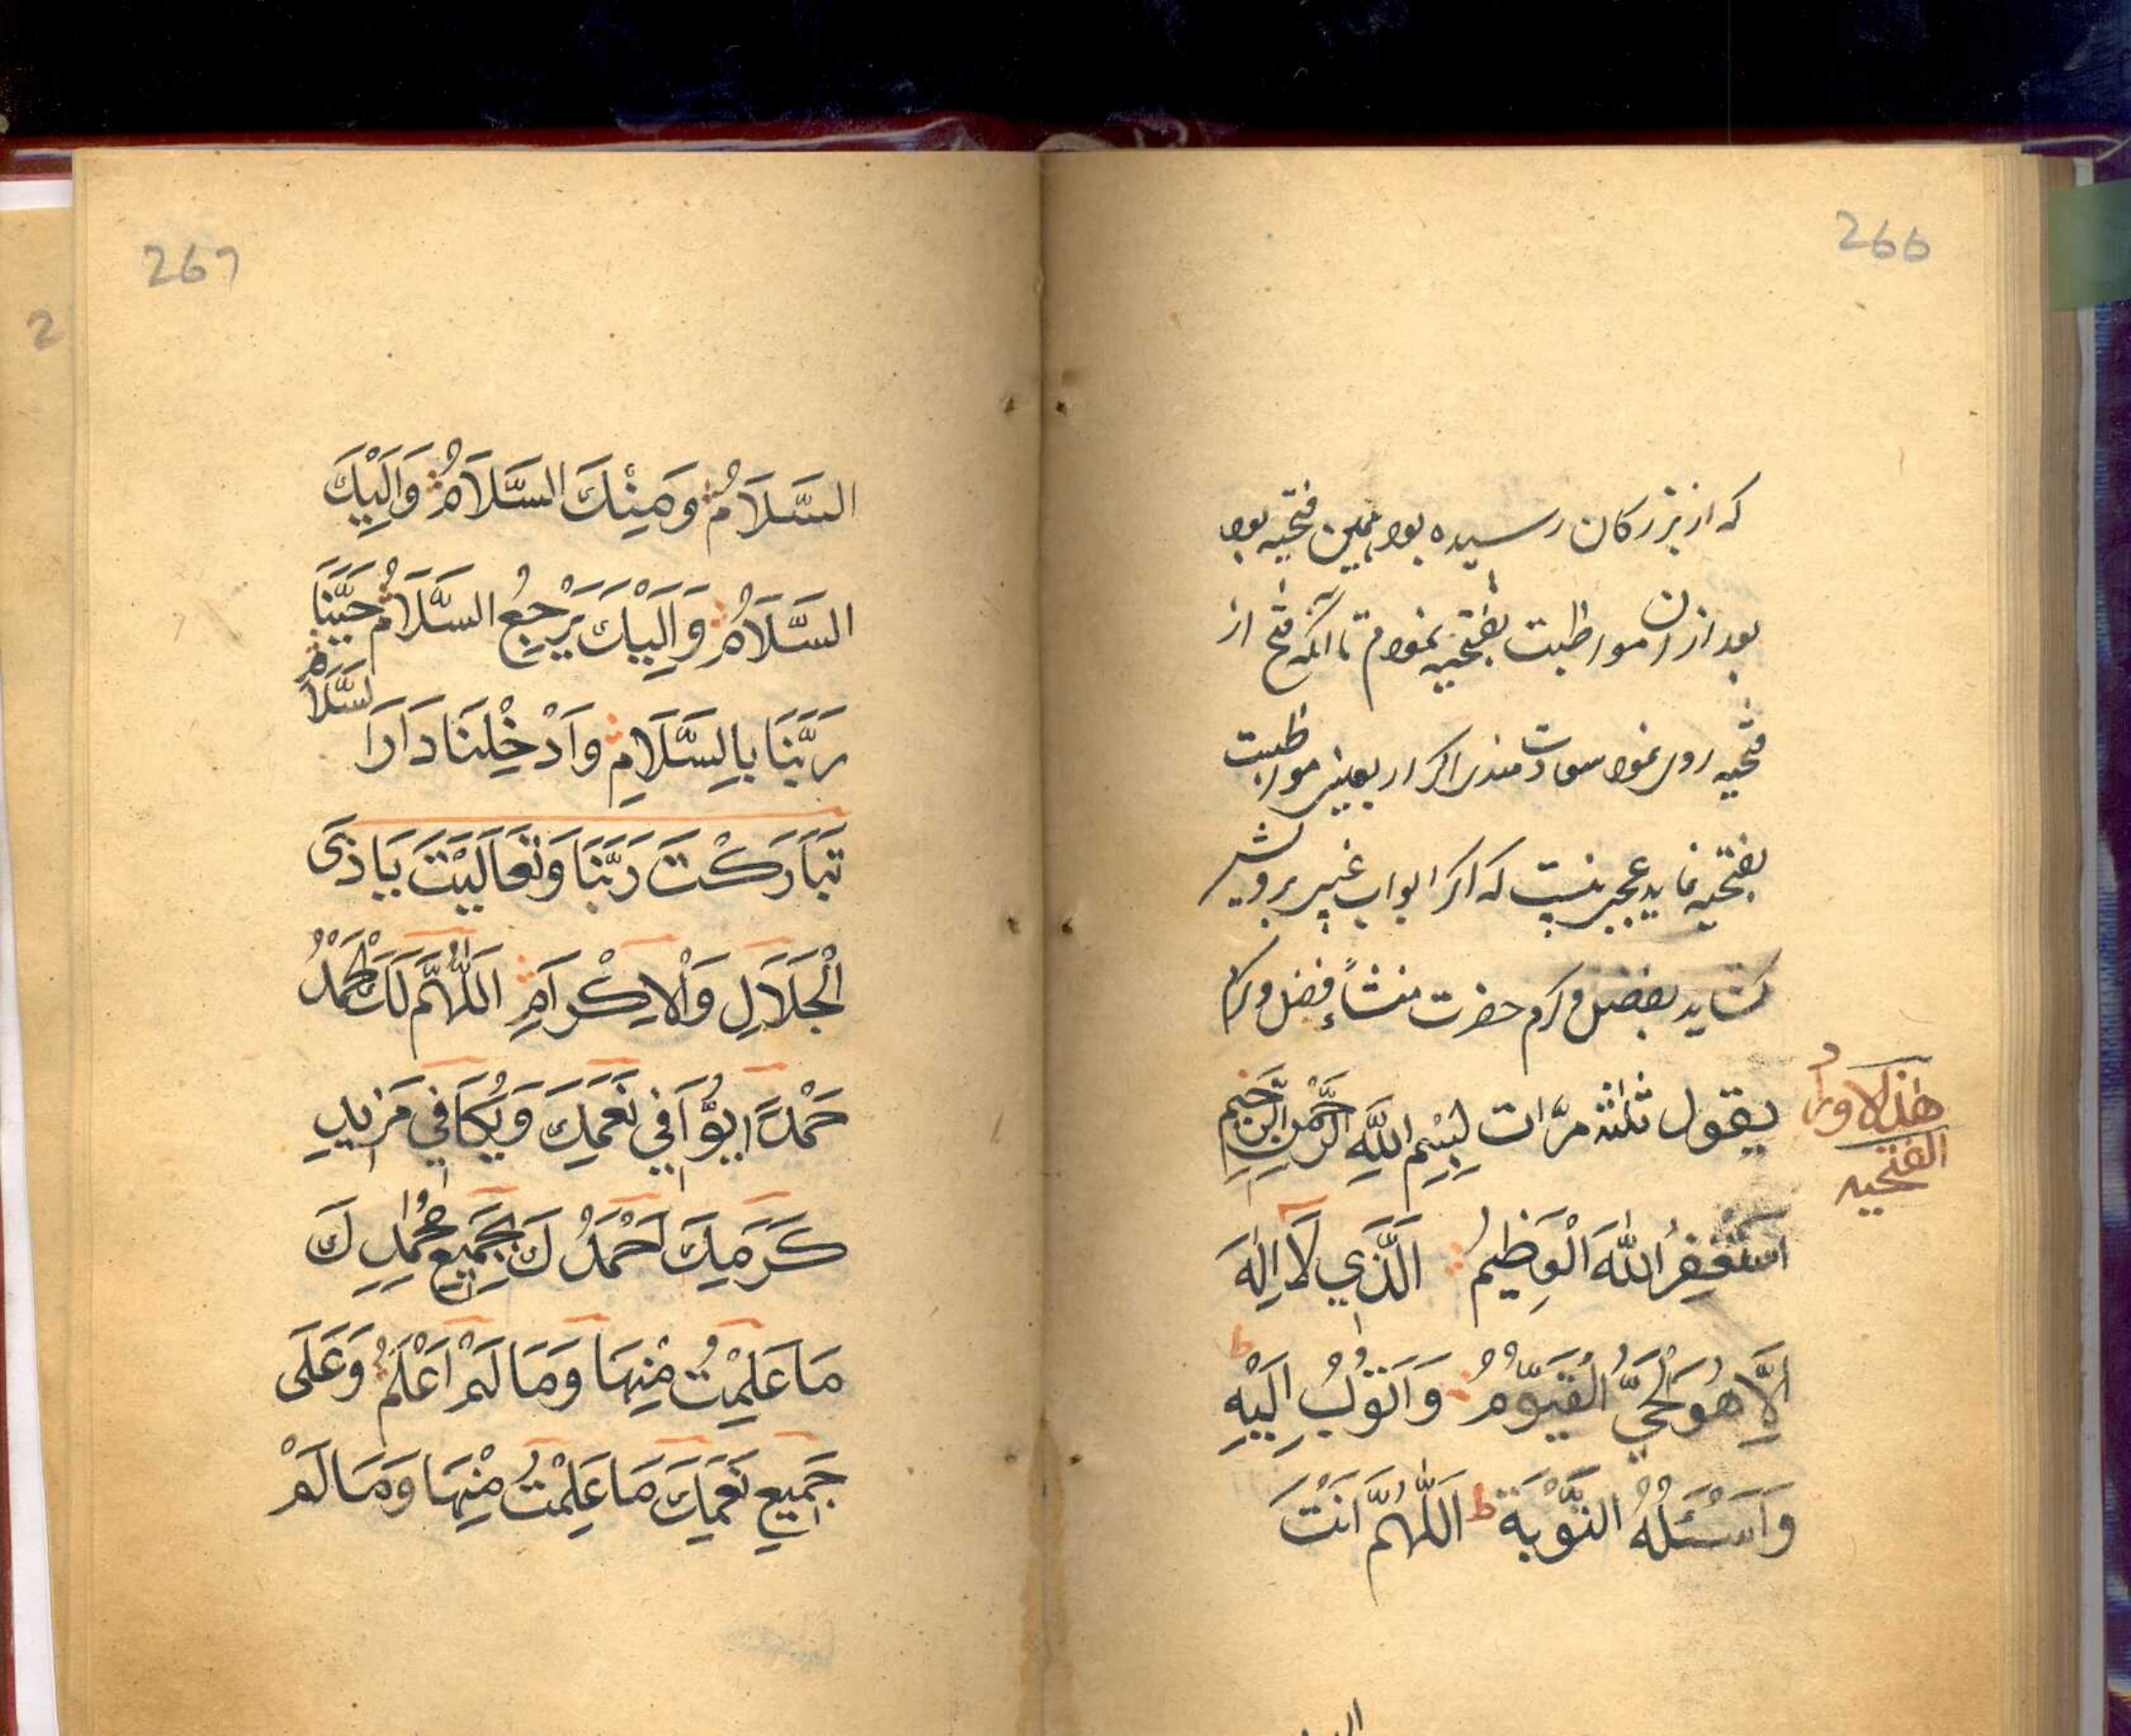 266
که از بزرکان رسیده بود همین فتحیه بود
بعد ازان مواظبت بفتحیه نمودم تا آنکه فتح از
فتحیه روی نمود سعادت مندی اکر اربعینی مواظبت
بفتحیه نماید عجب نیست که اکر ابواب غیب بر ویش
کشاید بفضل و کرم حضرت منشأ فضل و کرم
هذه الاوراد
الفتحیه
يقول ثلثه مرّات بِسْمِ اللَّهِ الرَّحْمٰنِ الرَّحِيْمِ
اَسْتَغْفِرُ اللّٰهَ الْعَظِيْمُ الَّذِي لَا اِلٰهَ
اِلَّا هُوَ الْحَيُّ الْقَيُّوْمُ وَاَتُوْبُ اِلَيْهِ
وَاَسْئَلُهُ التَّوْبَةَ ط اَللّٰهُمَّ اَنْتَ
267
السَّلَامُ وَمِنْكَ السَّلَامُ وَاِلَيْكَ
السَّلَامُ وَاِلَيْكَ يَرْجِعُ السَّلَامُ حَيِّنَا
رَبَّنَا بِالسَّلَامِ وَاَدْخِلْنَا دَارَا لسَّلَامِ
تَبَارَكْتَ رَبَّنَا وَتَعَالَيْتَ يَاذَی
الْجَلَالِ وَالْاِكْرَامِ اَللّٰهُمَّ لَكَ الْحَمْدُ
حَمْدًا يُوَافِي نَعَمِكَ وَيُكَافِي مَزِيدِ
كَرَمِكَ اَحْمَدُ كَ بِجَمِيْعِ مَحَامِدِ كَ
مَاعَلِمْتُ مِنْهَا وَمَالَمْ اَعْلَمُ وَعَلَى
جَمِيعِ نَعَمِكَ مَاعَلِمْتُ مِنْهَا وَمَالَمْ